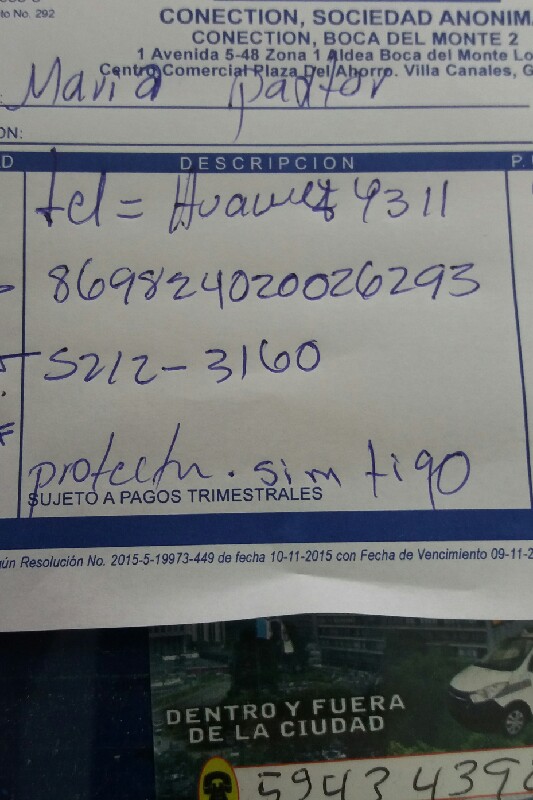 to No. 292
CONECTION, SOCIEDAD ANONIMA
CONECTION, BOCA DEL MONTE 2
1 Avenida 5-48 Zona 1 Aldea Boca del Monte Lo
Centro Comercial Plaza Del Ahorro. Villa Canales, G
Maria pastor
ON:
D DESCRIPCION P. U
tel = Huawei Y311
869824020026293
5212-3160
protector. sim tigo
SUJETO A PAGOS TRIMESTRALES
ún Resolución No. 2015-5-19973-449 de fecha 10-11-2015 con Fecha de Vencimiento 09-11-2
DENTRO Y FUERA
DE LA CIUDAD
5943 4398